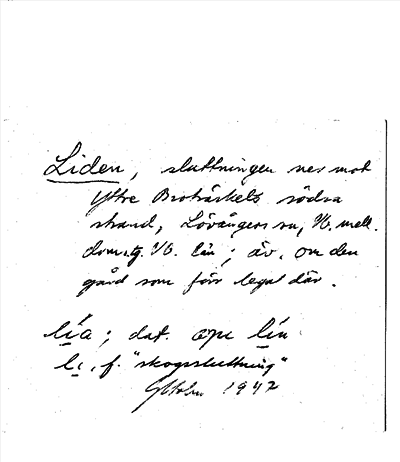 Liden, sluttningen ner mot
Yttre Broträskets södra
strand, Lövångers sn, N. mell.
domstg. Vb. län; äv. om den
gård som förr legat där.
lía; dat. opi lín
li, f. "skogssluttning"
1942